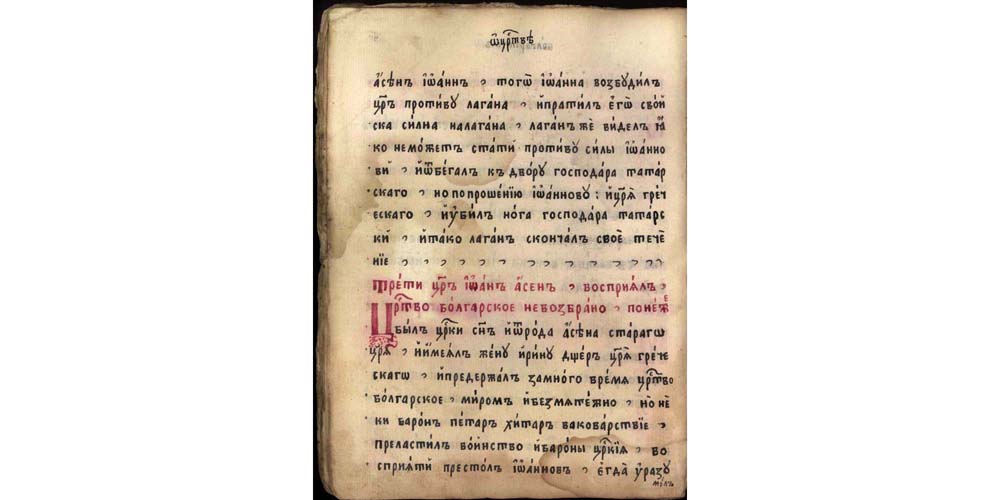 ѡц҃рⷭтвѣ
а҆сѣ́нъ і҆ѡа́ннъ , тогѡ̀ і҆ѡа́нна возбꙋди́лъ
ц҃рь проти́вꙋ лага́на , и҆пра́тилъ є҆гѡ̀ сво́й
ска си́лна налага́на , лага́нъ же ви́делъ ꙗ҆́
ко немо́жетъ ста́ти проти́вꙋ си́лы і҆ѡа́нно
ви , и҆ѿбе́галъ къ дво́рꙋ господа́ра тата́р
скаго , но попроше́нїю і҆ѡа́нновꙋ : и҆цр҃ѧ̀ гре́ч
ескаго , и҆ꙋби́лъ но́га господа́ра тата́рс
ки , и҆та́ко лага́нъ сконча́лъ своѐ тече́
нїе , , , , , , , , , , ,
тре́ти ц҃рь і҆ѡа́нъ а҆́сен , воспрїѧ́лъ ,
црⷭ҇тво бо́лгарское невозбра́но , поне́же
бы́лъ цр҃ки сн҃ъ и҆ѿро́да а҆сѣ́на ста́рагѡ
цр҃ѧ , и҆и҆ме́ѧлъ же́нꙋ и҆ри́нꙋ дще́ръ цр҃ѧ̀ гре́че
скагѡ , и҆предержа́лъ замно́го вре́мѧ црⷭ҇тво
бо́лгарское , ми́ромъ и҆безмѧте́жно , но не́
ки баро́нъ пе́таръ хи́таръ ваковарствїе ,
преласти́лъ во́инство и҆баро́ны цр҃кїѧ , во
сприѧ́ти престо́лъ і҆ѡа́нновъ , є҆гда̀ ᲂу҆разꙋ
мѣлъ